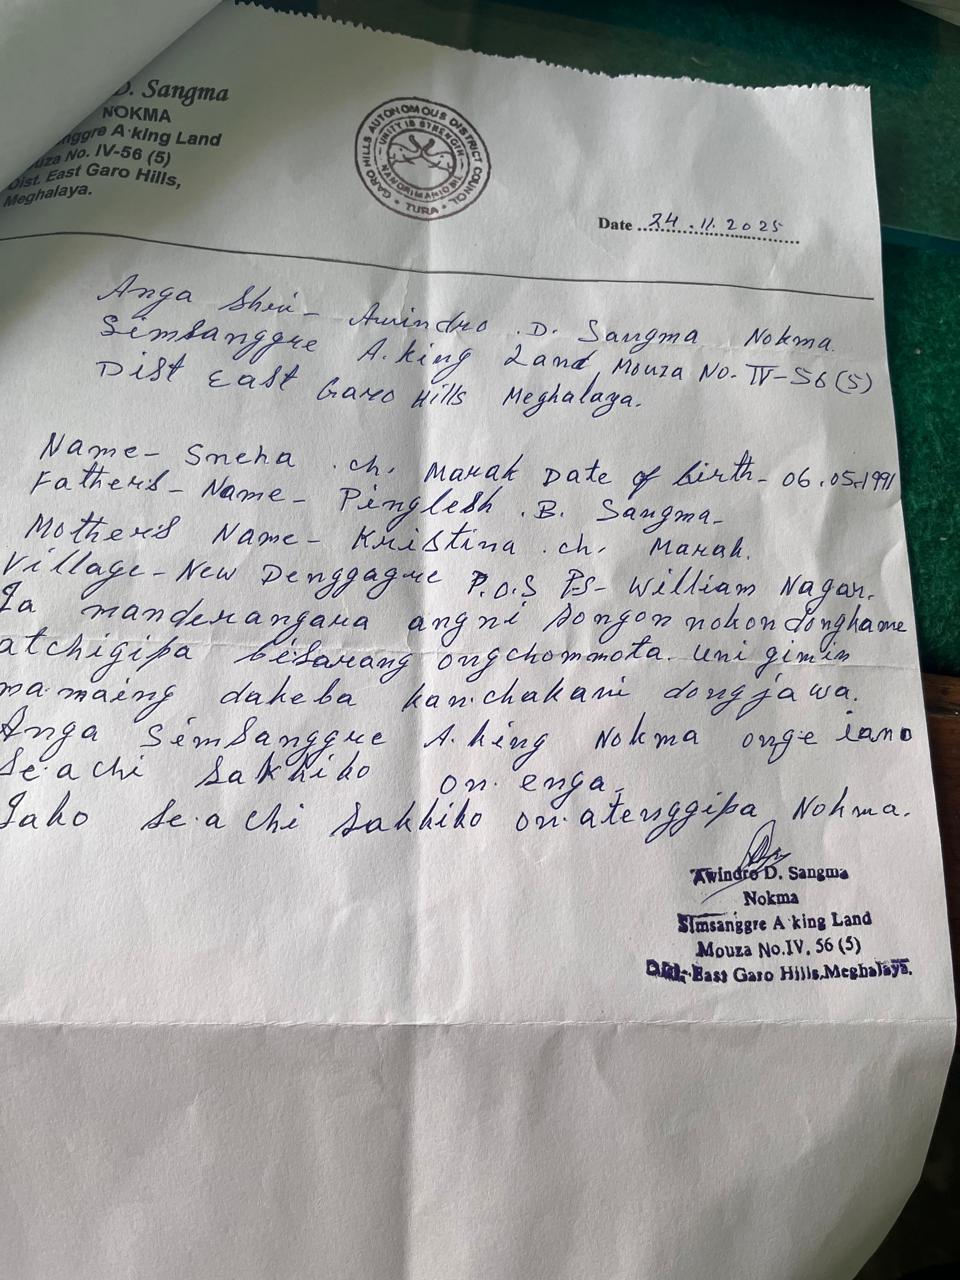 D. Sangma
NOKMA
nggre A·king Land
uza No. IV-56 (5)
Dist. East Garo Hills,
Meghalaya.
GARO HILLS AUTONOMOUS DISTRICT COUNCIL
UNITY IS STRENGTH
TURA
Date 24.11.2025
Anga Shri- Awindro .D. Sangma Nokma.
Simsanggre A.king Land, Mouza No. IV-56(5)
Dist East Garo Hills Meghalaya.
Name- Sneha .ch. Marak Date of birth- 06.05.1991
Fathers- Name- Pinglesh .B. Sangma-
Mothers Name- Kristina .ch. Marak.
Village- New Denggagre P.O.S PS- William Nagar.
Ia manderangara angni songon nokon dongkame
atchigipa bisarang ongchommota. Uni gimin
mamaing dakeba kan.chakani dongjawa.
Anga Simsanggre A.king Nokma onge iano
se.achi sakhiko on.enga.
Iako se.achi sakhiko on.atenggipa Nokma.
Awindro D. Sangma
Nokma
Simsanggre A·king Land
Mouza No.IV. 56 (5)
Dist. East Garo Hills,Meghalaya.